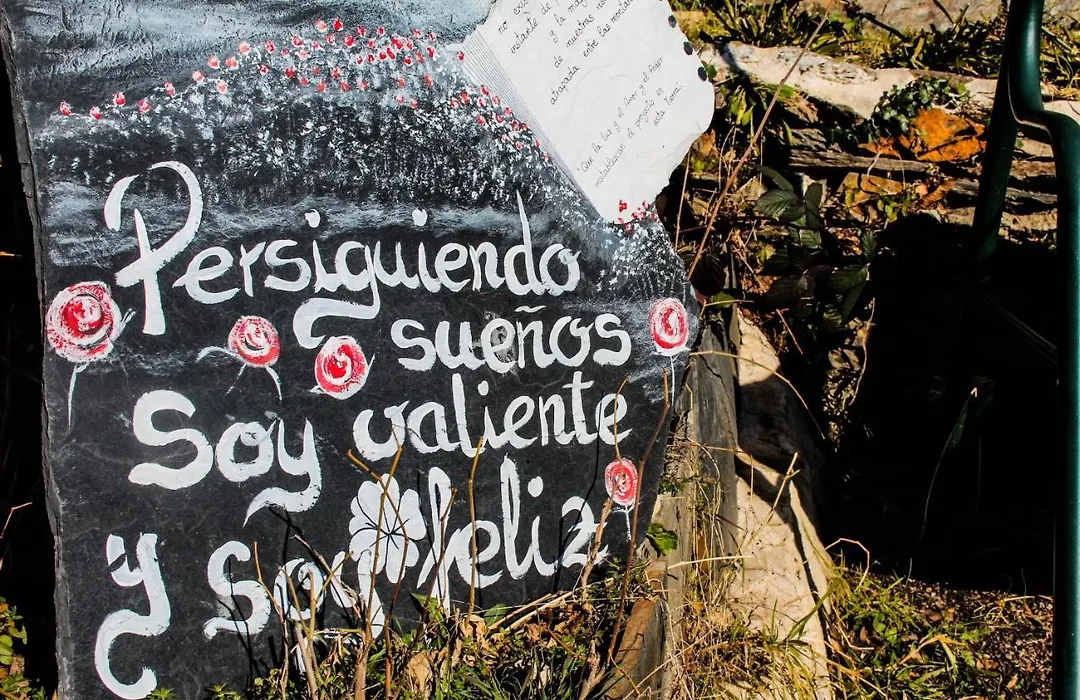 no exis
instante de
y la mag
de nuestras
atrapada entre las montañas
"Que la Luz y el Amor y el Poder
restablezcan el proyecto en
esta Tierra.
Persiguiendo
sueños
Soy valiente
y soy feliz